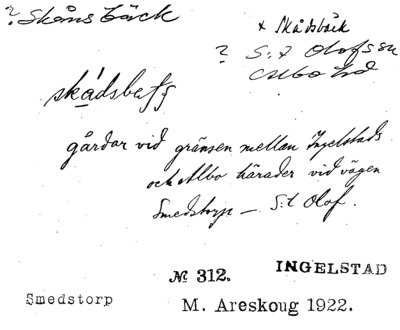 ? Skånsbäck
x Skådsbäck
? S:t Olofs sn
Albo hd
skádsbaʃʃ
gårdar vid gränsen mellan Ingelstads
och Albo härader vid vägen
Smedstorp — S:t Olof.
№ 312.
INGELSTAD
Smedstorp
M. Areskoug 1922.